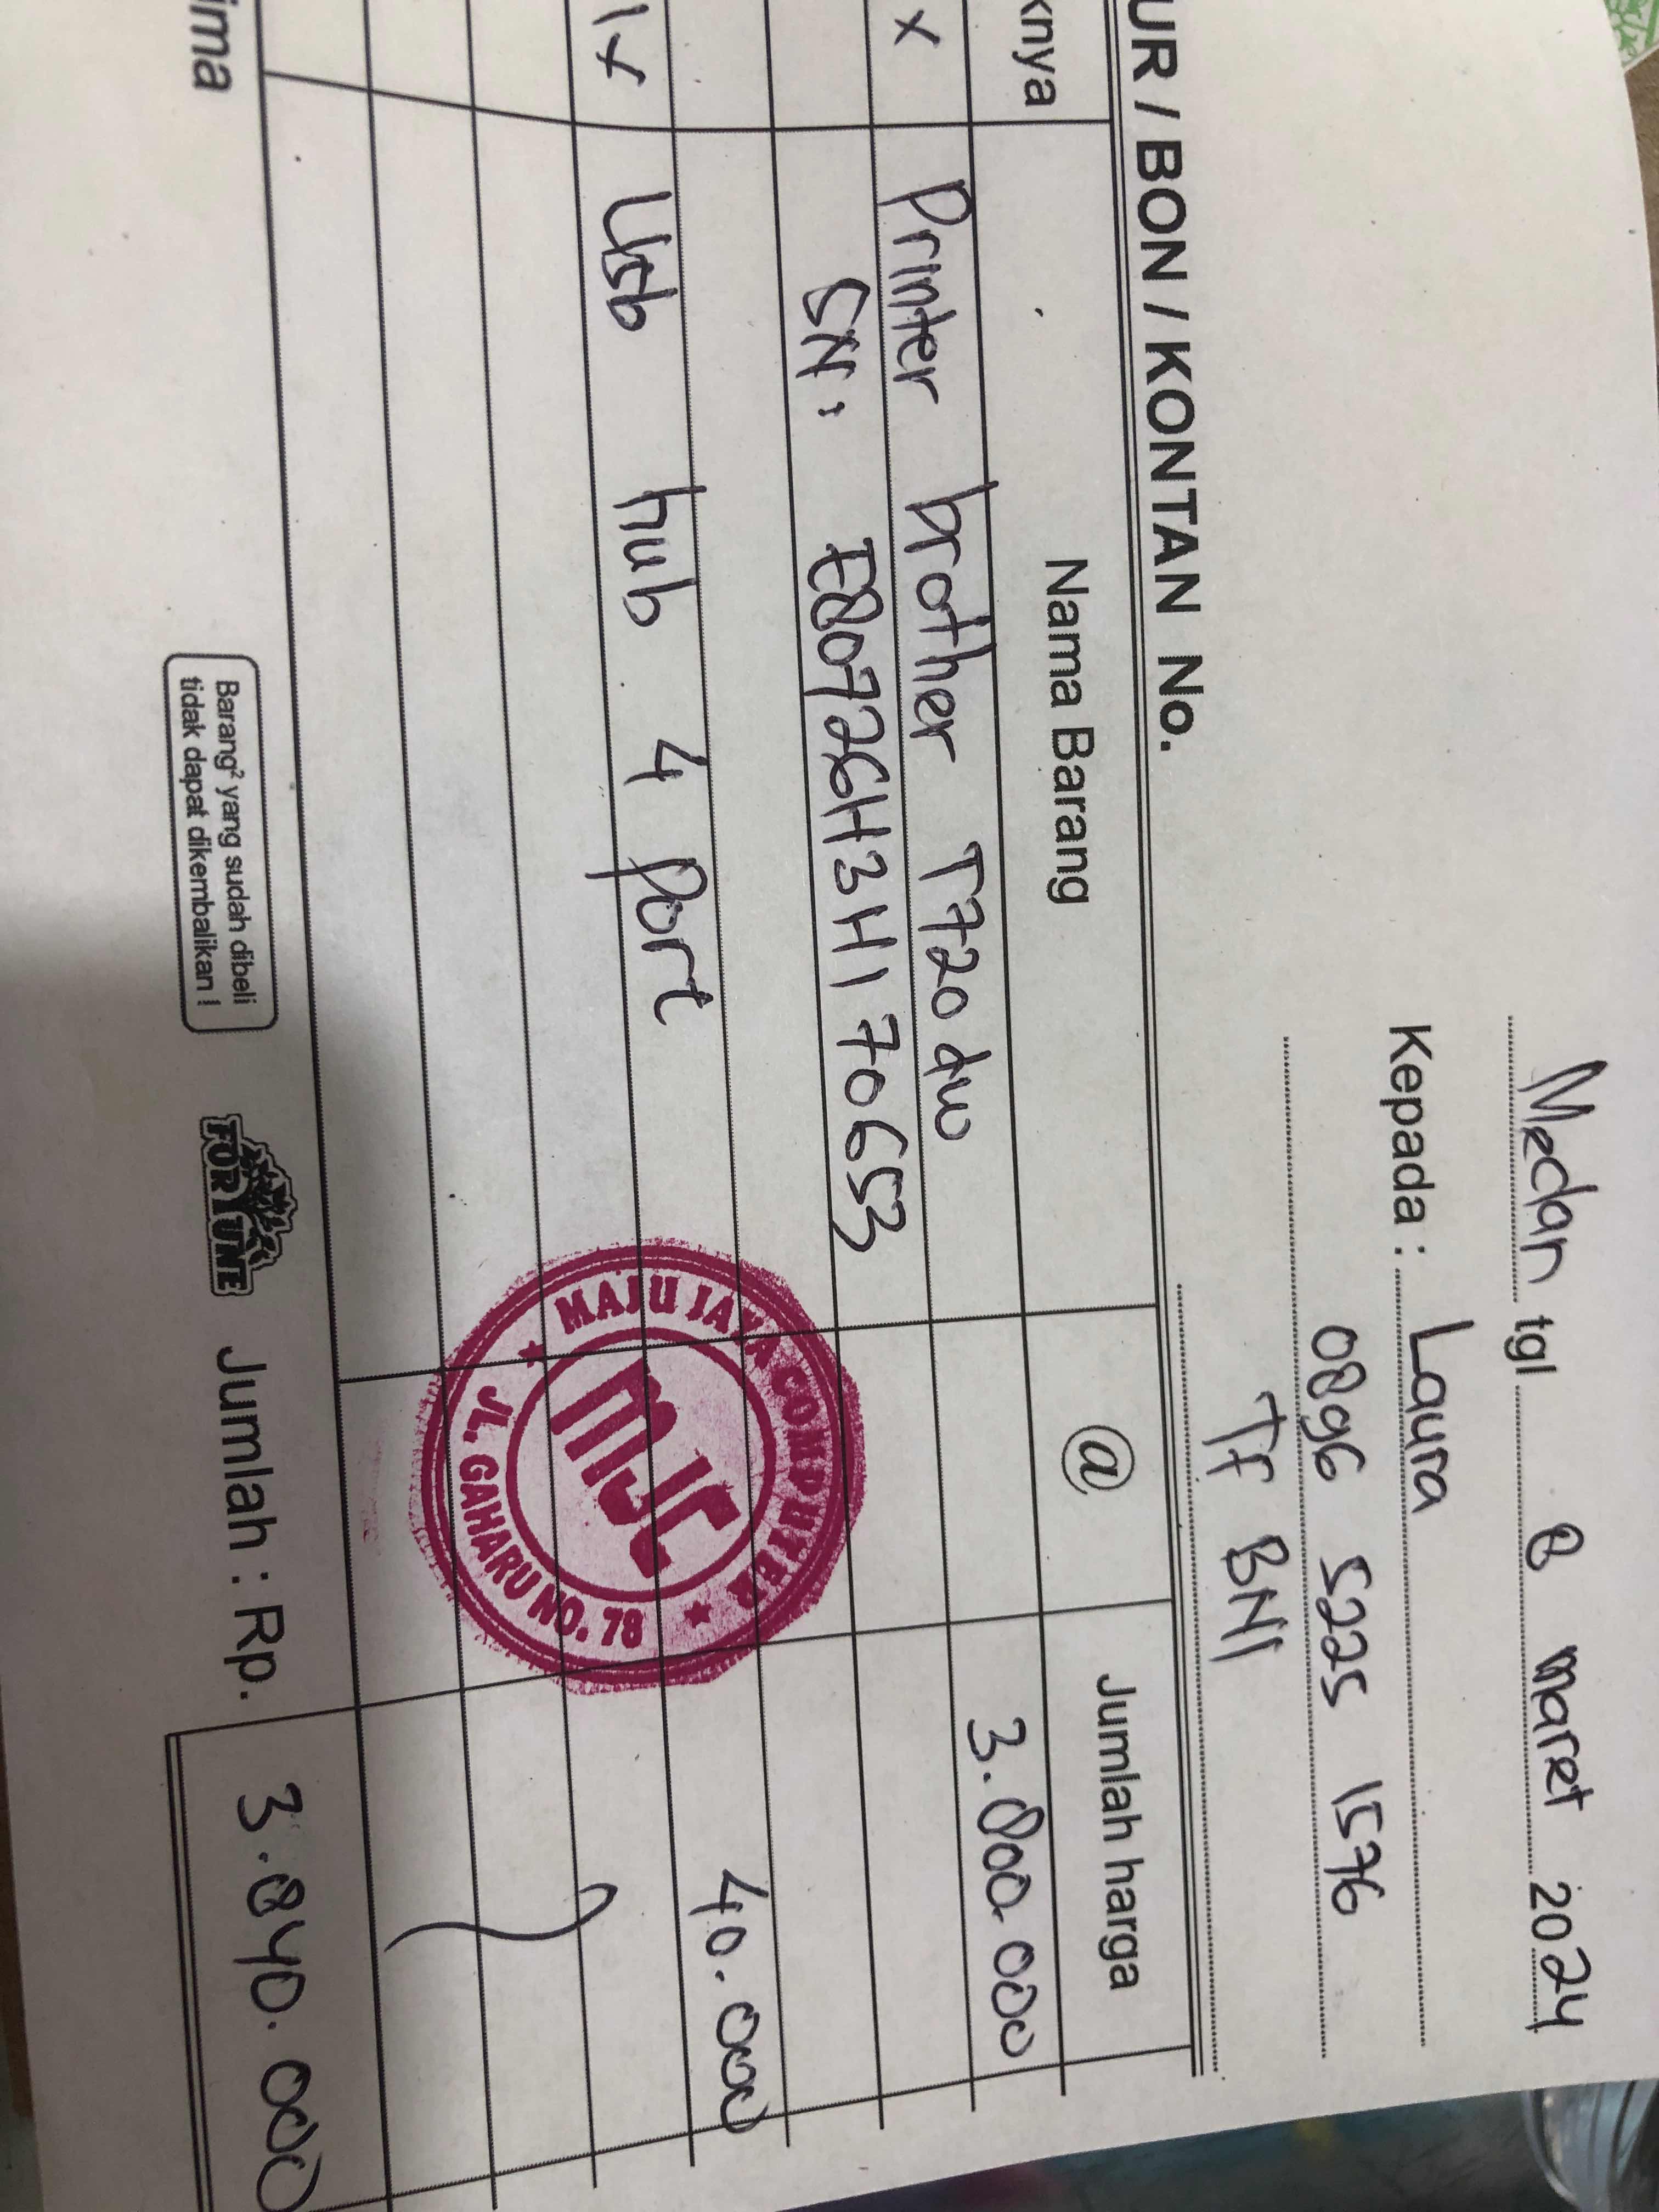 Medan tgl 8 maret 2024
Kepada : Laura
0896 5225 1576
Tf BNI
UR / BON / KONTAN No.
knya Nama Barang @ Jumlah harga
x Printer brother T720 dw 3.800.000
SN : E80726H3H170653
1x Usb hub 4 Port 40.000
MAJU JAYA COMPUTER
MJC
JL. GAHARU NO. 78
ima
Barang² yang sudah dibeli
tidak dapat dikembalikan !
FORTUNE
Jumlah : Rp. 3.840.000